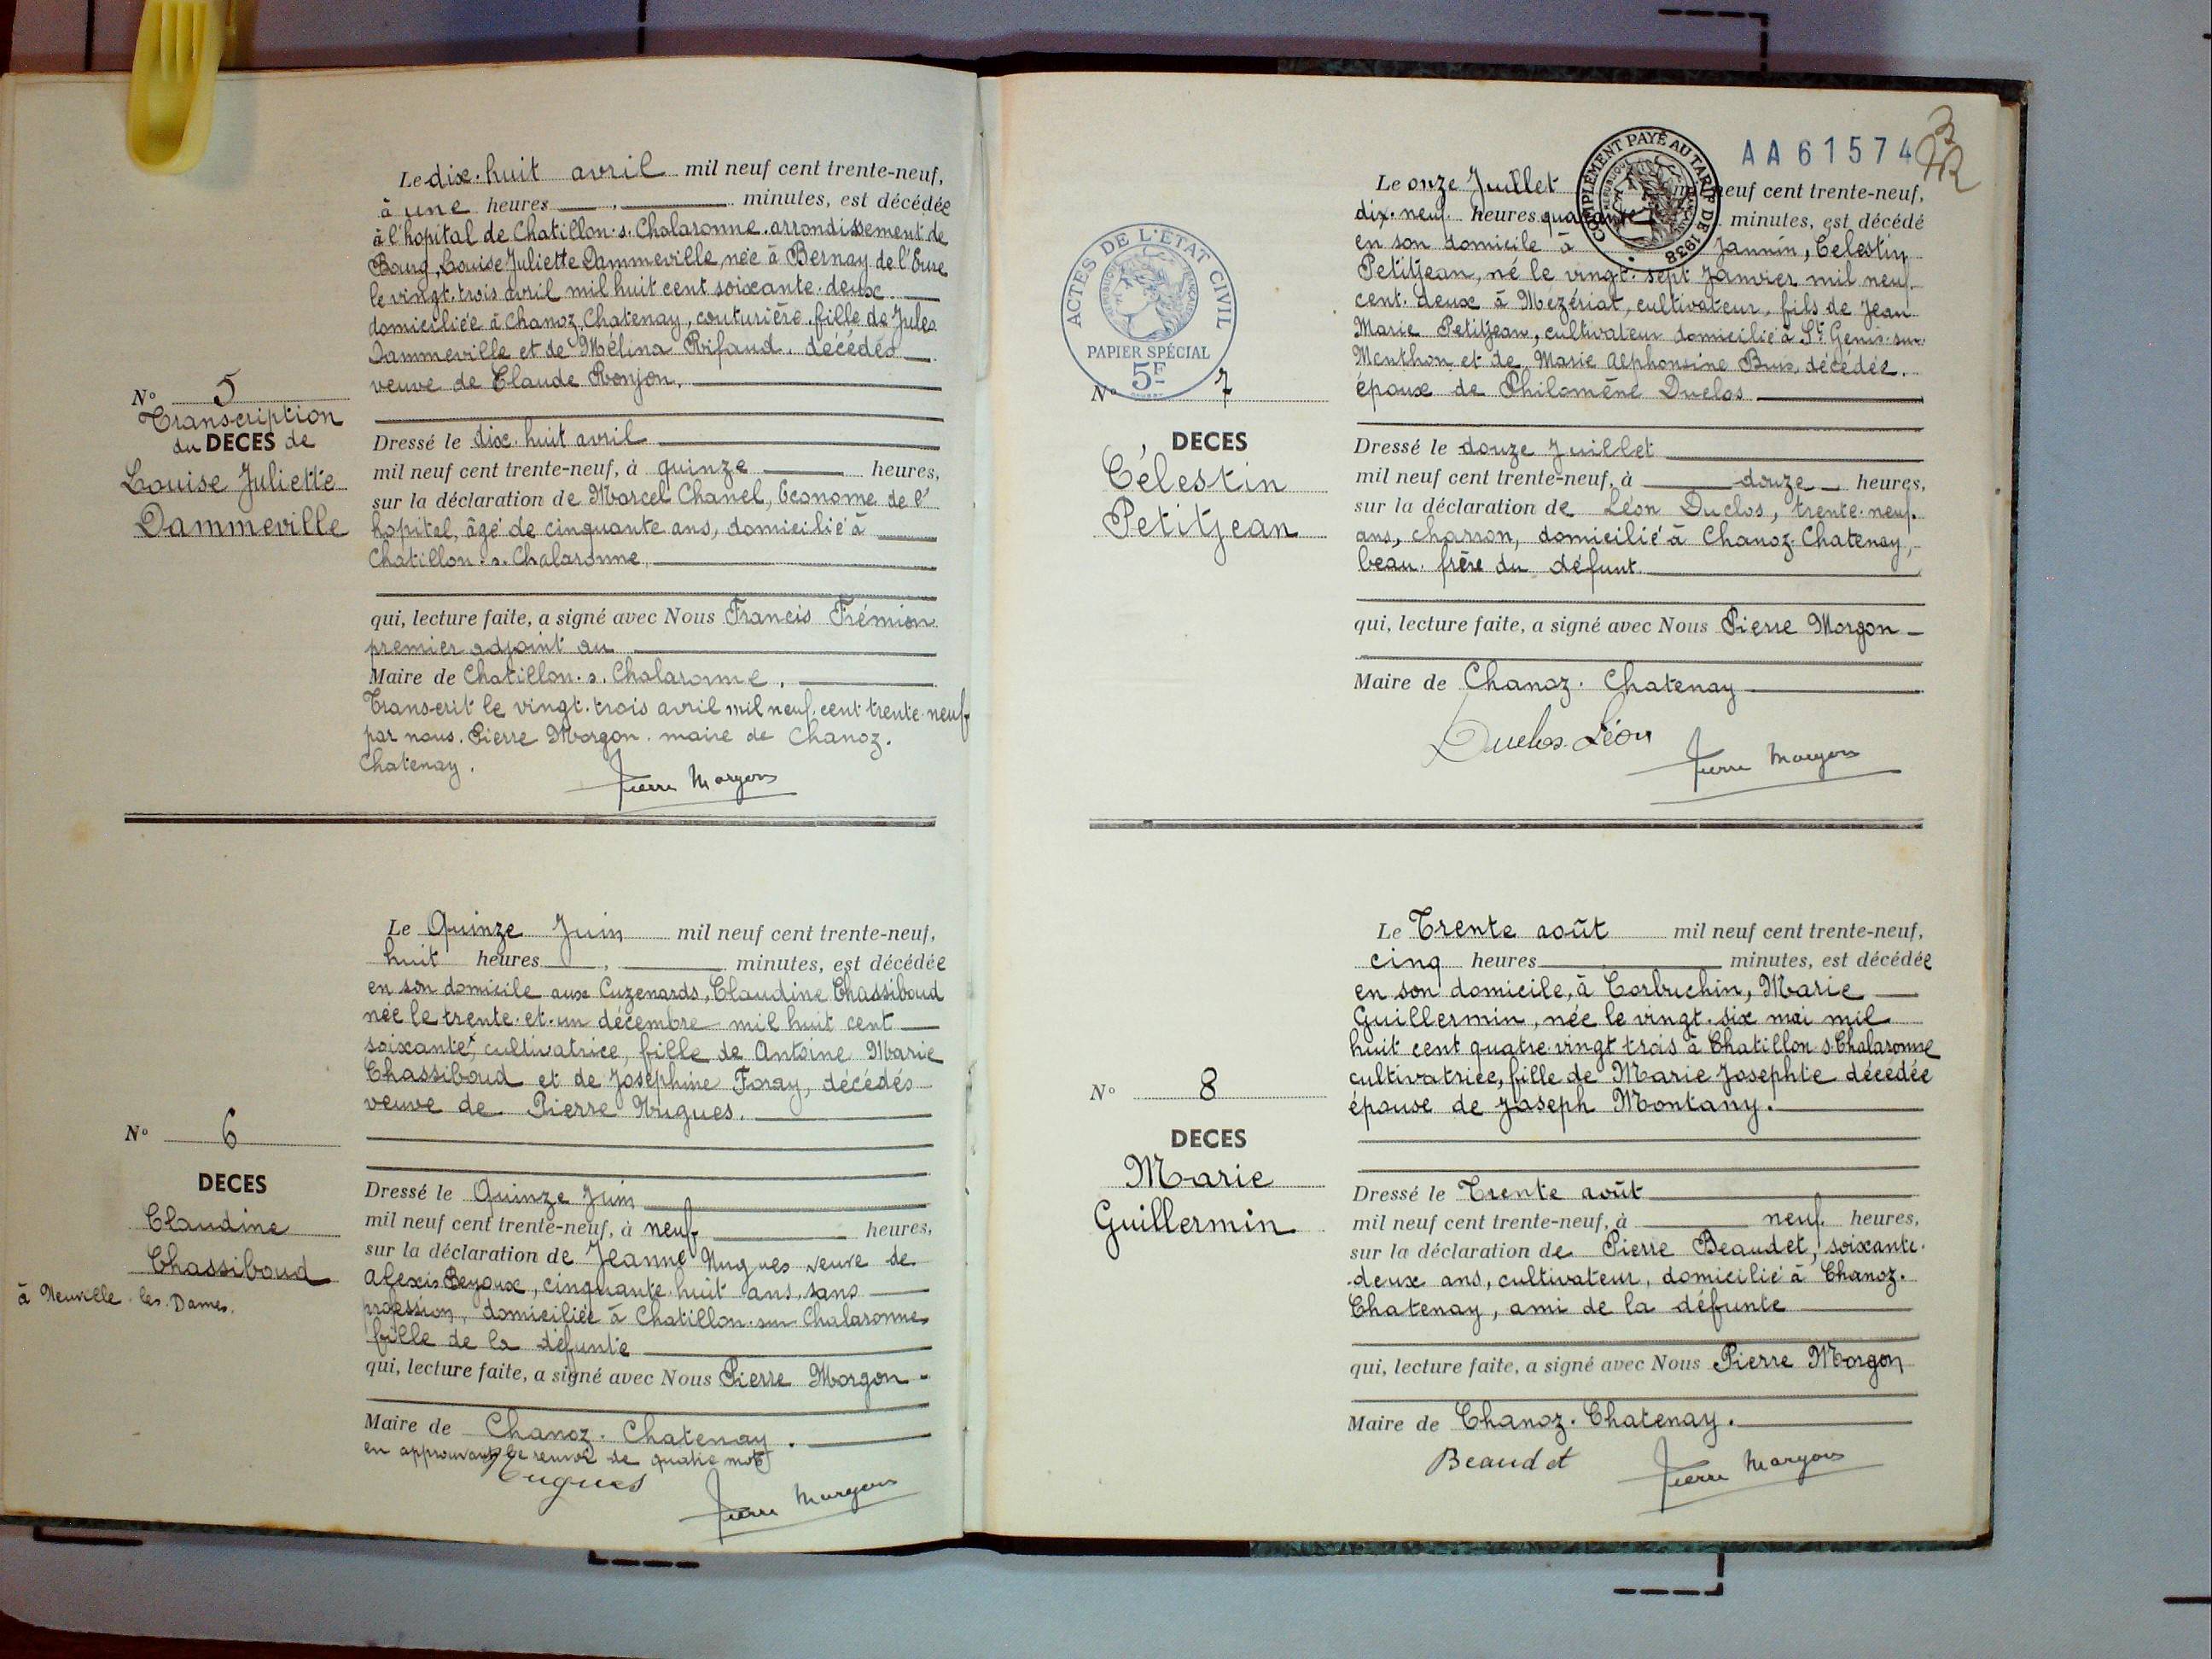 Le dix-huit avril mil neuf cent trente-neuf,
à une heures minutes, est décédée
à l'hopital de Chatillon-s-Chalaronne, arrondissement de
Bourg, Louise Juliette Dammeville, née à Bernay de l'Eure
le vingt-trois avril mil huit cent soixante-deux
domiciliée à Chanoz Chatenay, couturière, fille de Jules
Dammeville et de Mélina Rifaud, décédés
veuve de Claude Ronjon.
N° 5
Transcription
du DECES de
Louise Juliette
Dammeville
Dressé le dix-huit avril
mil neuf cent trente-neuf, à quinze heures,
sur la déclaration de Marcel Chanel, Econome de l'
hopital, âgé de cinquante ans, domicilié à
Chatillon-s-Chalaronne
qui, lecture faite, a signé avec Nous Francis Frémion
premier adjoint au
Maire de Chatillon-s-Chalaronne.
Transcrit le vingt-trois avril mil neuf cent trente-neuf
par nous, Pierre Morgon, maire de Chanoz-
Chatenay.
Pierre Morgon
Le Quinze Juin mil neuf cent trente-neuf,
huit heures, minutes, est décédée
en son domicile aux Cuzenards, Claudine Chassiboud
née le trente-et-un décembre mil huit cent
soixante x, cultivatrice, fille de Antoine Marie
Chassiboud et de Joséphine Foray, décédés
veuve de Pierre Nugues.
N° 6
DECES
Claudine
Chassiboud
à Neuville-les-Dames.
Dressé le Quinze Juin
mil neuf cent trente-neuf, à neuf heures,
sur la déclaration de Jeanne Nugues veuve de
Alexis Beyoux, cinquante-huit ans, sans
profession, domiciliée à Chatillon-sur-Chalaronne
fille de la défunte
qui, lecture faite, a signé avec Nous Pierre Morgon
Maire de Chanoz-Chatenay.
en approuvant le renvoi de quatre mots
Nugues
Pierre Morgon
AA61574
3
COMPLÉMENT PAYÉ AU TARIF DE 1938
Le onze Juillet mil neuf cent trente-neuf,
dix-neuf heures quarante minutes, est décédé
en son domicile à Jannin, Célestin
Petitjean, né le vingt-sept Janvier mil neuf-
cent-deux à Mézériat, cultivateur, fils de Jean
Marie Petitjean, cultivateur domicilié à St Genis-sur-
Menthon et de Marie Alphonsine Buis, décédée.
époux de Philomène Duclos
ACTES DE L'ÉTAT CIVIL
RÉPUBLIQUE FRANÇAISE
PAPIER SPÉCIAL
5F
N° 7
DECES
Célestin
Petitjean
Dressé le douze Juillet
mil neuf cent trente-neuf, à douze heures,
sur la déclaration de Léon Duclos, trente-neuf
ans, charron, domicilié à Chanoz-Chatenay,
beau-frère du défunt
qui, lecture faite, a signé avec Nous Pierre Morgon
Maire de Chanoz-Chatenay
Duclos Léon
Pierre Morgon
Le Trente août mil neuf cent trente-neuf,
cinq heures minutes, est décédée
en son domicile, à Corbuchin, Marie
Guillermin, née le vingt-six mai mil
huit cent quatre-vingt trois à Chatillon s-Chalaronne
cultivatrice, fille de Marie Josephte décédée
épouse de Joseph Montany.
N° 8
DECES
Marie
Guillermin
Dressé le Trente août
mil neuf cent trente-neuf, à neuf heures,
sur la déclaration de Pierre Beaudet, soixante-
deux ans, cultivateur, domicilié à Chanoz-
Chatenay, ami de la défunte
qui, lecture faite, a signé avec Nous Pierre Morgon
Maire de Chanoz-Chatenay.
Beaudet
Pierre Morgon